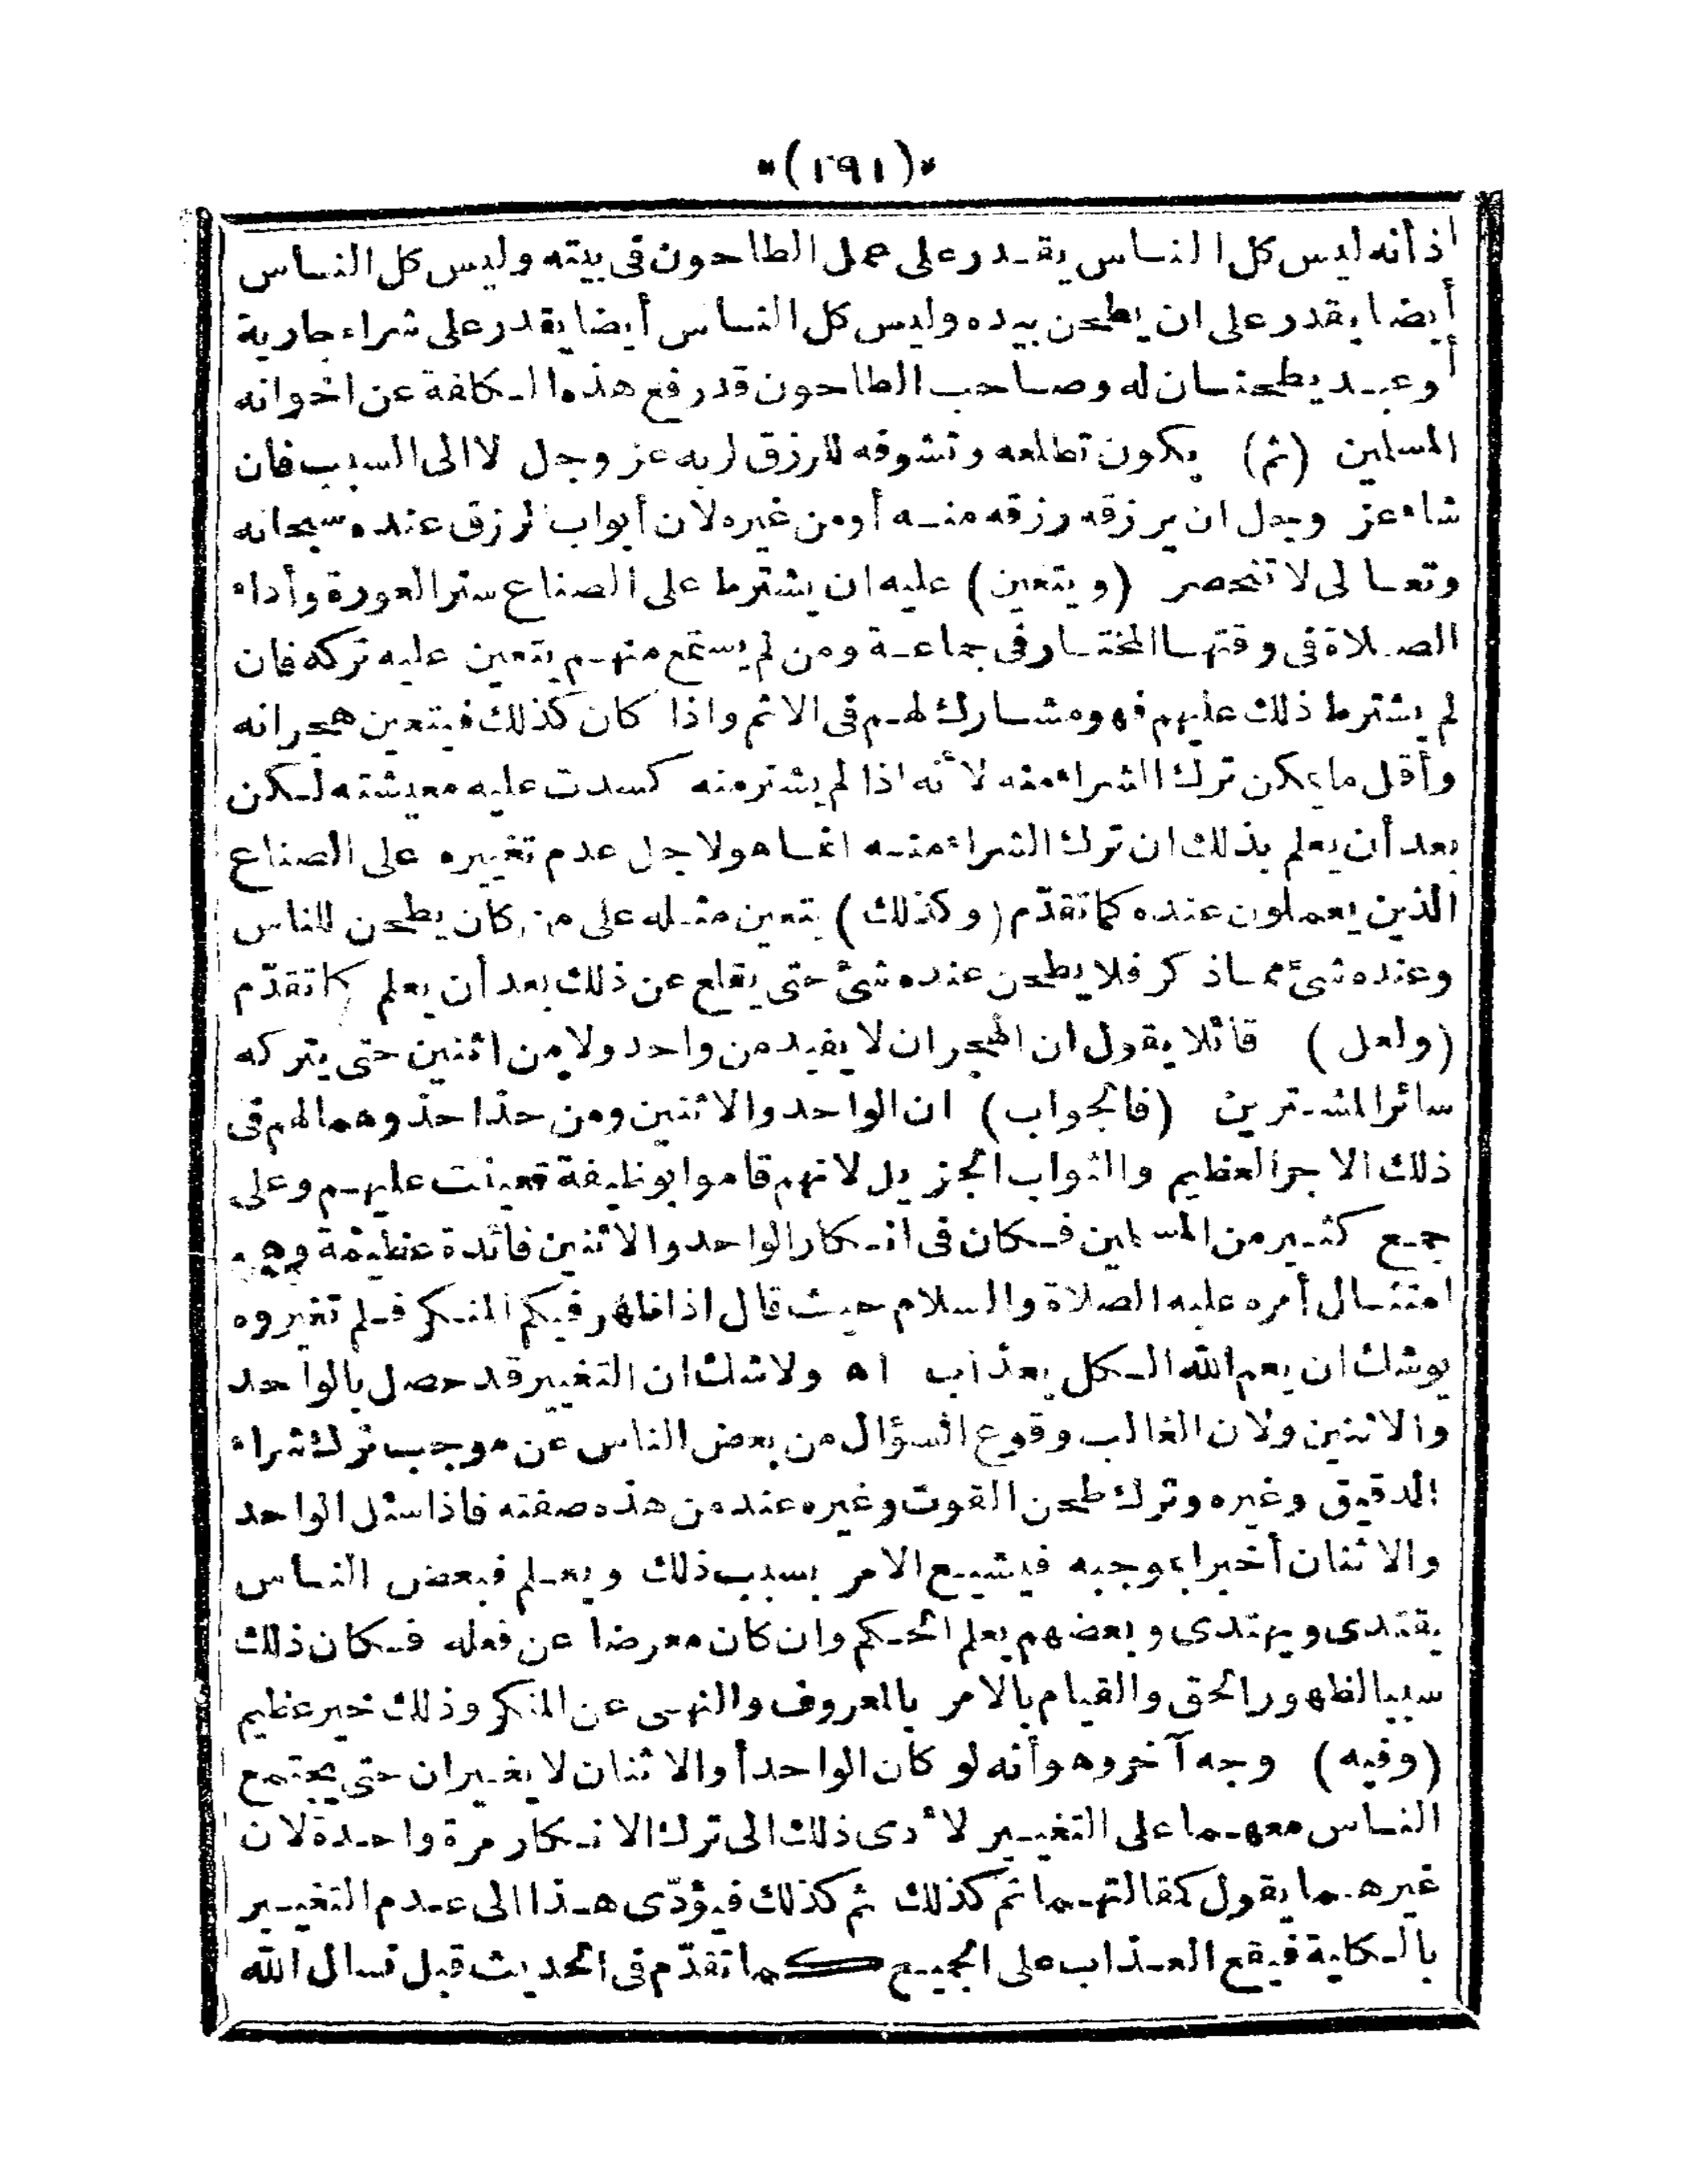 *(١٩١)*
اذ أنه ليس كل الناس يقدر على عمل الطاحون فى بيته وليس كل الناس
أيضا يقدر على ان يطحن بيده وليس كل الناس أيضا يقدر على شراء جارية
أوعبد يطحنان له وصاحب الطاحون قد رفع هذه الكلفة عن اخوانه
المسلمين (ثم) يكون تطلعه وتشوفه للرزق لربه عز وجل لا الى السبب فان
شاء عز وجل ان يرزقه رزقه منه أومن غيره لان أبواب الرزق عنده سبحانه
وتعالى لا تنحصر (ويتعين) عليه ان يشترط على الصناع ستر العورة وأداء
الصلاة فى وقتها المختار فى جماعة ومن لم يستمع منهم يتعين عليه تركه فان
لم يشترط ذلك عليهم فهو مشارك لهم فى الاثم واذا كان كذلك فيتعين هجرانه
وأقل ما يمكن ترك الشراء منه لأنه اذا لم يشتر منه كسدت عليه معيشته لكن
بعد أن يعلم بذلك ان ترك الشراء منه انما هو لاجل عدم تغييره على الصناع
الذين يعملون عنده كما تقدّم (وكذلك) يتعين مثله على من كان يطحن للناس
وعنده شئ مما ذكر فلا يطحن عنده شئ حتى يقلع عن ذلك بعد أن يعلم كما تقدّم
(ولعل) قائلا يقول ان الهجران لا يفيد من واحد ولا من اثنين حتى يتركه
سائر المشترين (فالجواب) ان الواحد والاثنين ومن حذا حذوهما لهم فى
ذلك الاجر العظيم والثواب الجزيل لانهم قاموا بوظيفة تعينت عليهم وعلى
جمع كثير من المسلمين فكان فى انكار الواحد والاثنين فائدة عظيمة وهى
امتثال أمره عليه الصلاة والسلام حيث قال اذا ظهر فيكم المنكر فلم تغيروه
يوشك ان يعم الله الكل بعذاب اه ولا شك ان التغيير قد حصل بالواحد
والاثنين ولان الغالب وقوع السؤال من بعض الناس عن موجب ترك شراء
الدقيق وغيره وترك طحن القوت وغيره عند من هذه صفته فاذا سئل الواحد
والاثنان أخبرا بموجبه فيشيع الامر بسبب ذلك ويعلم فبعض الناس
يقتدى ويهتدى وبعضهم يعلم الحكم وان كان معرضا عن فعله فكان ذلك
سببا لظهور الحق والقيام بالامر بالمعروف والنهى عن المنكر وذلك خير عظيم
(وفيه) وجه آخر وهو أنه لو كان الواحد أوالاثنان لا يغيران حتى يجتمع
الناس معهما على التغيير لأدى ذلك الى ترك الانكار مرة واحدة لان
غيرهما يقول كمقالتهما ثم كذلك ثم كذلك فيؤدّى هذا الى عدم التغيير
بالكلية فيقع العذاب على الجميع كما تقدّم فى الحديث قبل نسال الله